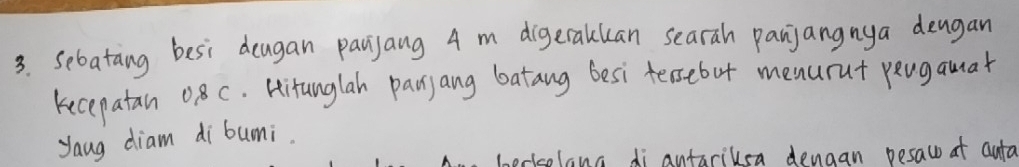 3. Sebatang besi dengan panjang 4 m digerakkan searah panjangnya dengan
kecepatan 0,8 c. Hitunglah panjang batang besi tersebut menurut pengamat
yang diam di bumi.
berselang di antariksa dengan pesawat anta